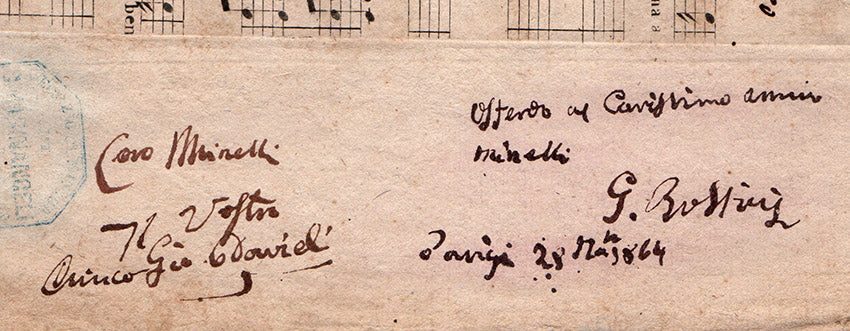 ben
na a
Caro Minelli
Il Vostro
Amico Gio David
Offerto al Carissimo amico
Minelli
G. Rossini
Parigi 28 1864